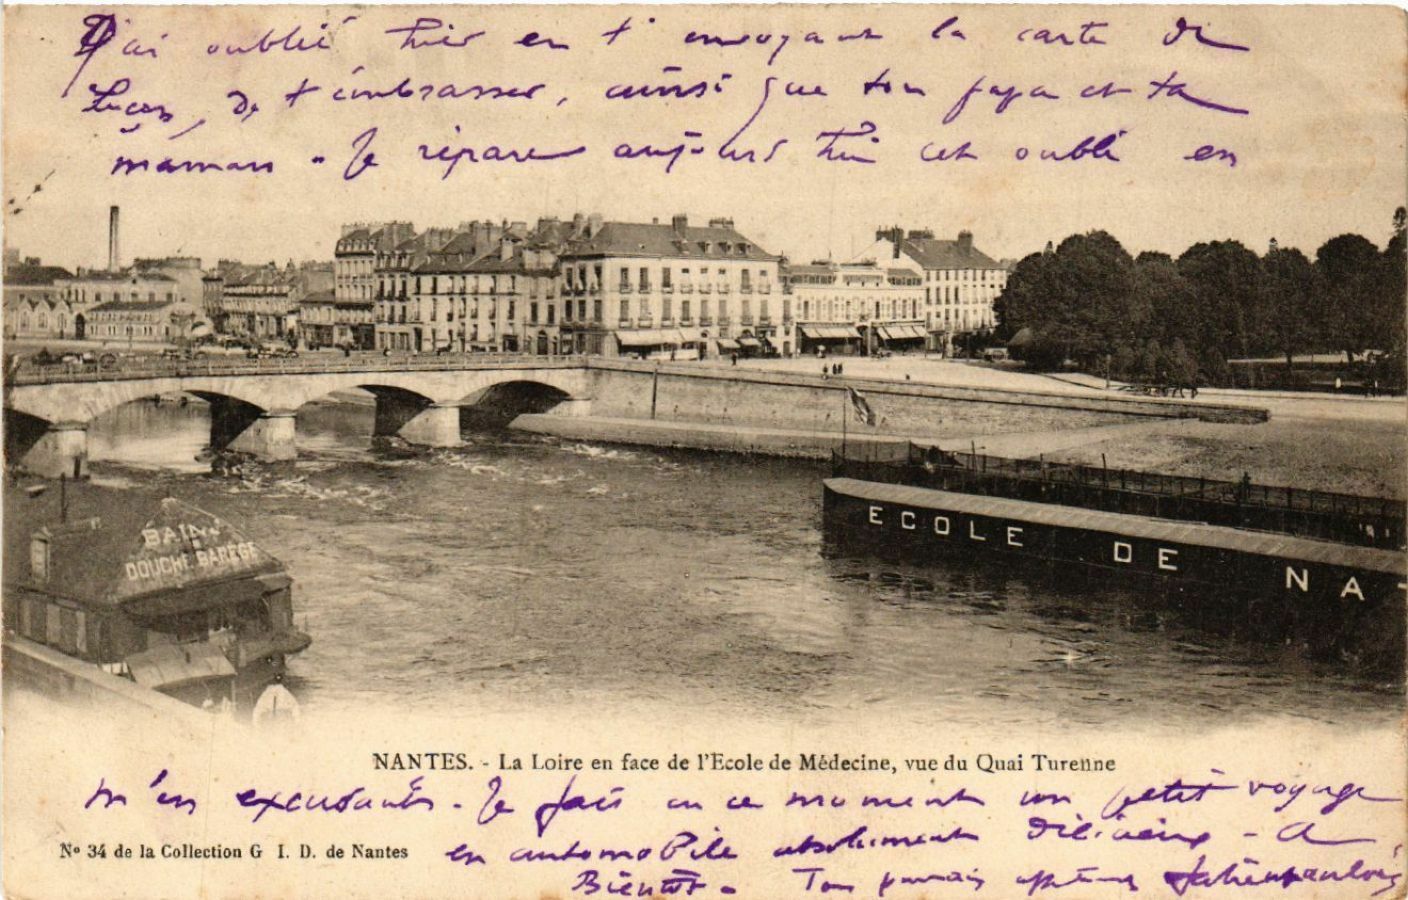 J'ai oublié hier en t'envoyant la carte de
Luçon, de t'embrasser, ainsi que ton papa et ta
maman. Je répare aujourd'hui cet oubli en
BAINS
DOUCHE BAREGE
ECOLE DE NA
NANTES. - La Loire en face de l'Ecole de Médecine, vue du Quai Turenne
m'en excusant. Je fais en ce moment un petit voyage
No 34 de la Collection G I. D. de Nantes
en automobile absolument délicieux - A
Bientôt. Ton